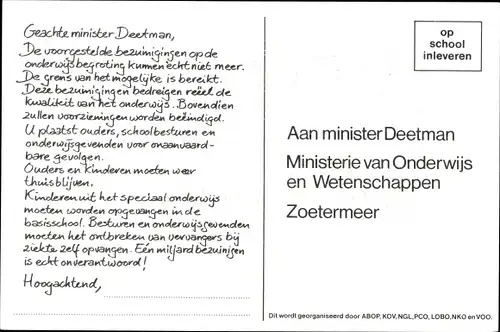 Geachte minister Deetman,
De voorgestelde bezuinigingen op de
onderwijsbegroting kunnen echt niet meer.
De grens van het mogelijke is bereikt.
Deze bezuinigingen bedreigen reëel de
kwaliteit van het onderwijs. Bovendien
zullen voorzieningen worden beëindigd.
U plaatst ouders, schoolbesturen en
onderwijsgevenden voor onaanvaard-
bare gevolgen.
Ouders en kinderen moeten weer
thuisblijven.
Kinderen uit het speciaal onderwijs
moeten worden opgevangen in de
basisschool. Besturen en onderwijsgevenden
moeten het ontbreken van vervangers bij
ziekte zelf opvangen. Eén miljard bezuinigen
is echt onverantwoord!
Hoogachtend,
op
school
inleveren
Aan minister Deetman
Ministerie van Onderwijs
en Wetenschappen
Zoetermeer
Dit wordt georganiseerd door ABOP, KOV, NGL, PCO, LOBO, NKO en VOO.